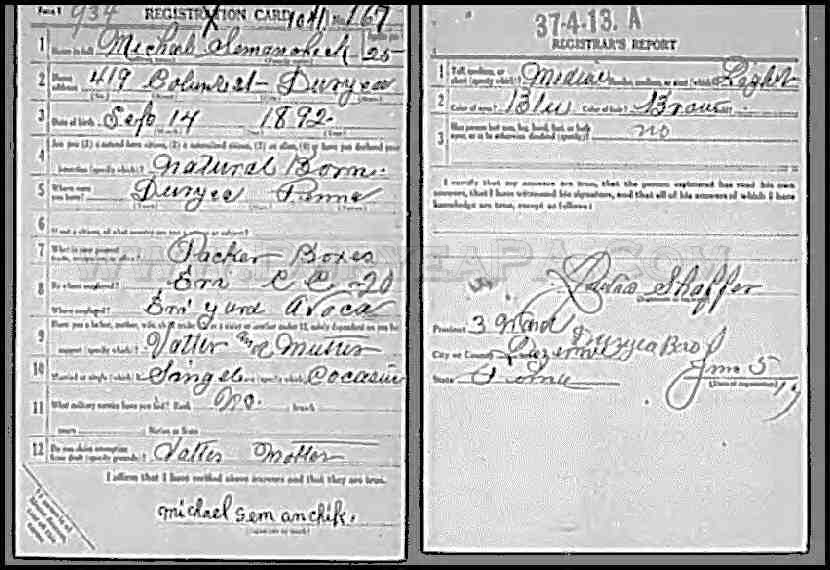 Form 1 934 REGISTRATION CARD No. 167
1 Name in full Michael Semancheck Age in yrs 25
2 Home address 419 Columbest Duryea
3 Date of birth Sep 14 1892
4 Are you (1) a natural born citizen, (2) a naturalized citizen, (3) an alien, (4) or have you declared your
intention (specify which)? natural Born.
5 Where were you born? Duryea Penna
6 If not a citizen, of what country are you a citizen or subject?
7 What is your present trade, occupation, or office? Packer Boxes
8 By whom employed? Eri C C - 20
Where employed? Eri yard Avoca
9 Have you a father, mother, wife, child under 12, or a sister or brother under 12, solely dependent on you for
support (specify which)? Vatter and Mutter
10 Married or single (which)? Singel Race (specify which)? Cocasin
11 What military service have you had? Rank No. branch
years Nation or State
12 Do you claim exemption from draft (specify grounds)? Vatter Motter
I affirm that I have verified above answers and that they are true.
michael semanchik.
(Signature or mark)
37-4-13. A
REGISTRAR'S REPORT
1 Tall, medium, or short (specify which)? Mediae Slender, medium, or stout (which)? Light
2 Color of eyes? Blu Color of hair? Braun
3 Has person lost arm, leg, hand, foot, or both eyes, or is he otherwise disabled (specify)? no
I certify that my answers are true, that the person registered has read his own
answers, that I have witnessed his signature, and that all of his answers of which I have
knowledge are true, except as follows:
WWW.DURYEAPA.COM
Shaffer
(Signature of registrar)
Precinct 3 Ward
Duryea Boro
City or County Luzerne
State Penna
June 5 17
(Date of registration)